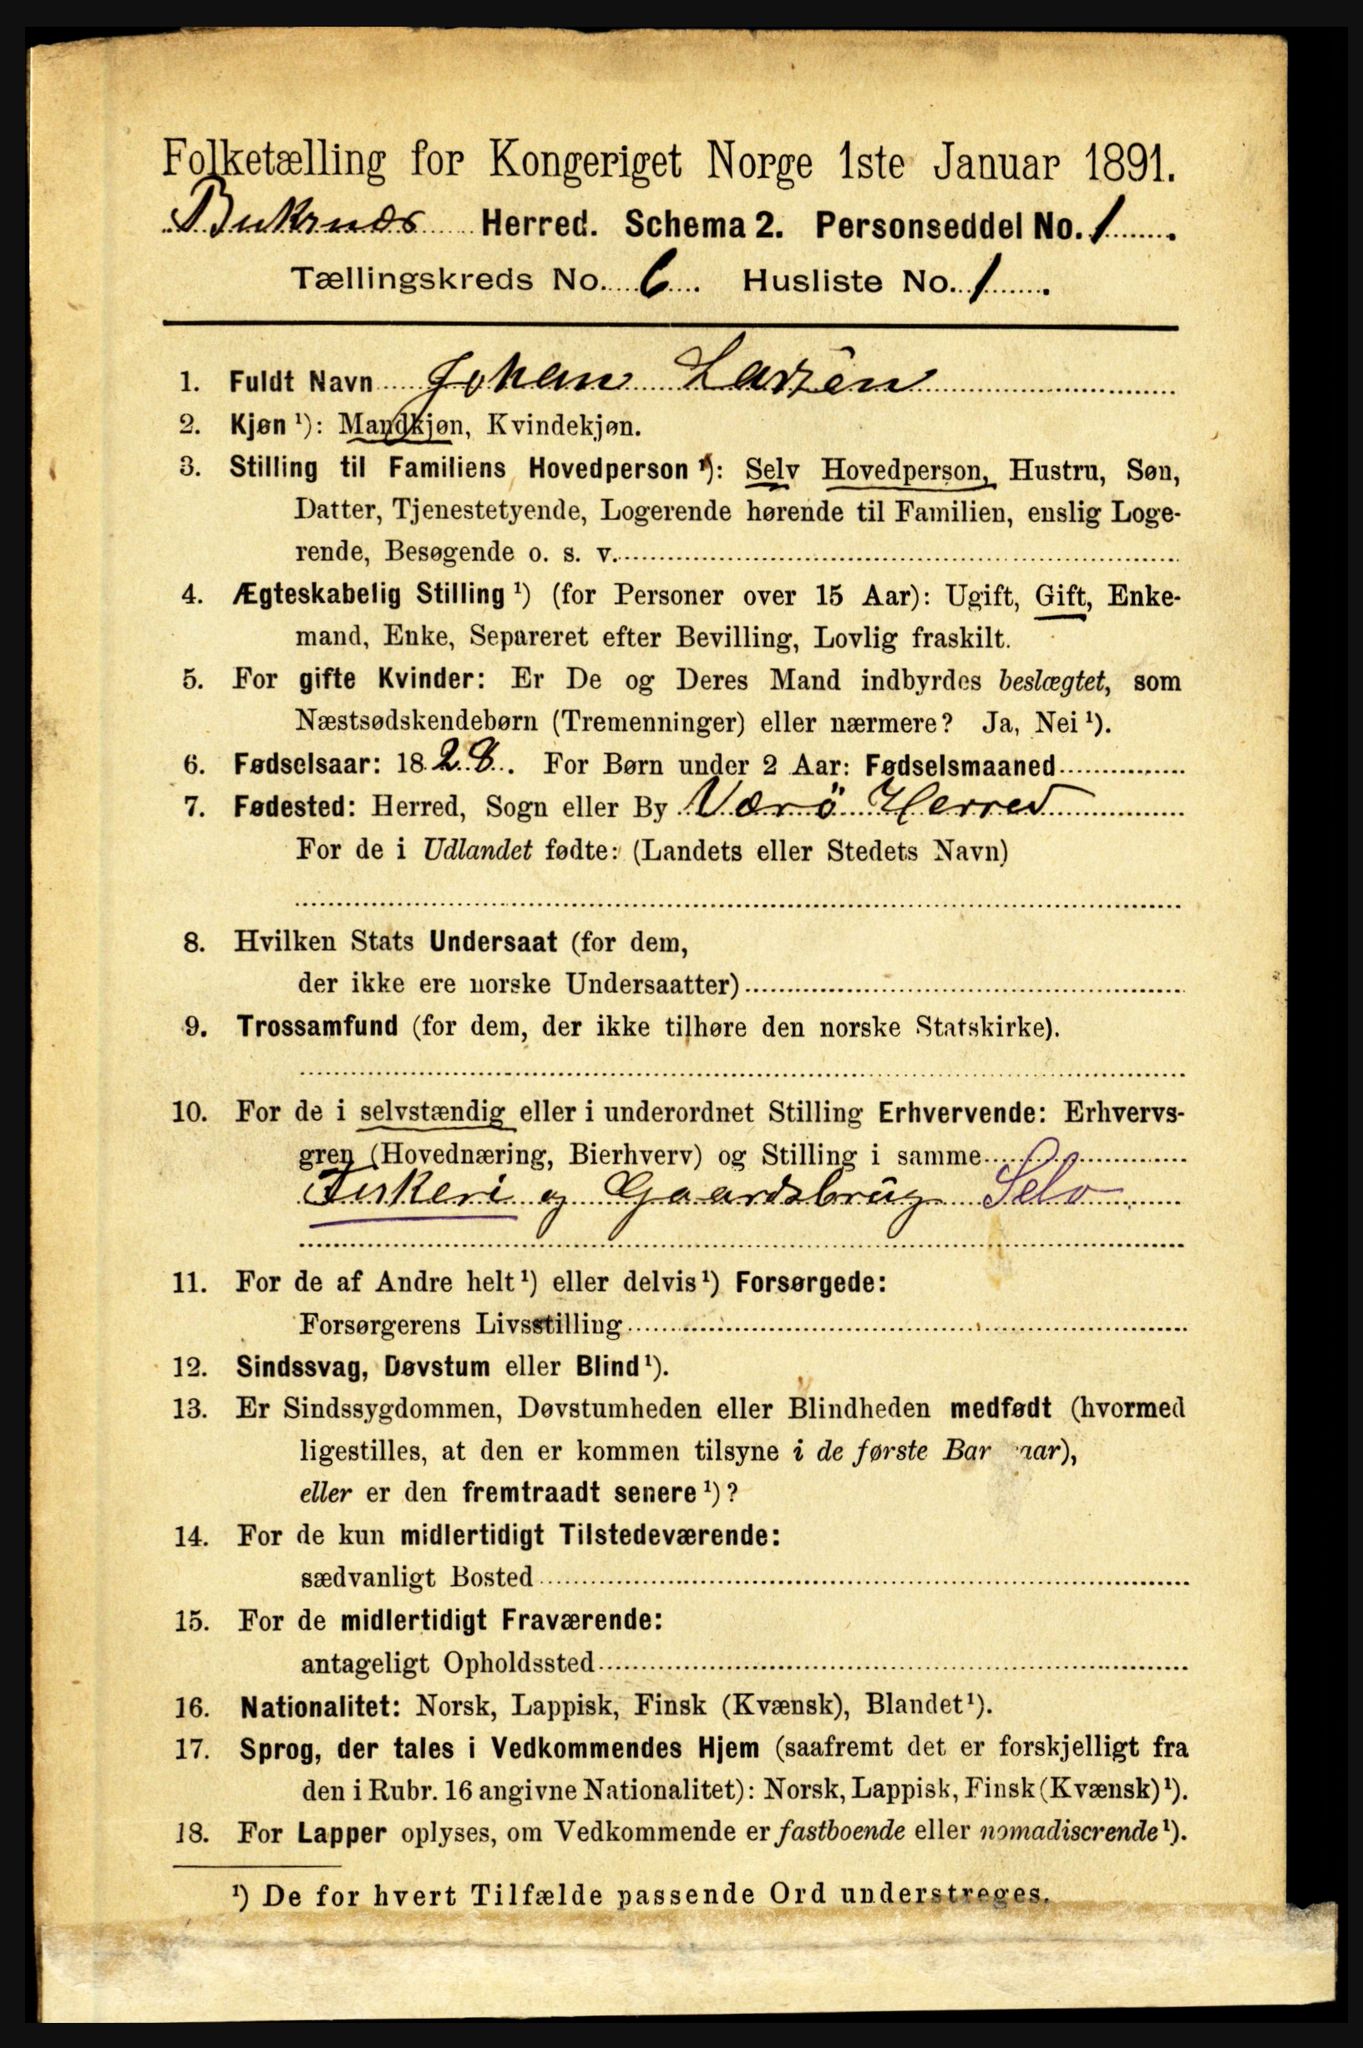 Folketælling for Kongeriget Norge 1ste Januar 1891.
Buksnæs Herred. Schema 2. Personseddel No. 1.
Tællingskreds No. 6. Husliste No. 1.
1. Fuldt Navn Johan Larsen
2. Kjøn ¹): Mandkjøn, Kvindekjøn.
3. Stilling til Familiens Hovedperson ¹): Selv Hovedperson, Hustru, Søn,
Datter, Tjenestetyende, Logerende hørende til Familien, enslig Loge-
rende, Besøgende o. s. v.
4. Ægteskabelig Stilling ¹) (for Personer over 15 Aar): Ugift, Gift, Enke-
mand, Enke, Separeret efter Bevilling, Lovlig fraskilt.
5. For gifte Kvinder: Er De og Deres Mand indbyrdes beslægtet, som
Næstsødskendebørn (Tremenninger) eller nærmere? Ja, Nei ¹).
6. Fødselsaar: 1828. For Børn under 2 Aar: Fødselsmaaned
7. Fødested: Herred, Sogn eller By Værö Herred
For de i Udlandet fødte: (Landets eller Stedets Navn)
8. Hvilken Stats Undersaat (for dem,
der ikke ere norske Undersaatter)
9. Trossamfund (for dem, der ikke tilhøre den norske Statskirke).
10. For de i selvstændig eller i underordnet Stilling Erhvervende: Erhvervs-
gren (Hovednæring, Bierhverv) og Stilling i samme
Fiskeri og Gaardsbrug Selv
11. For de af Andre helt ¹) eller delvis ¹) Forsørgede:
Forsørgerens Livsstilling
12. Sindssvag, Døvstum eller Blind ¹).
13. Er Sindssygdommen, Døvstumheden eller Blindheden medfødt (hvormed
ligestilles, at den er kommen tilsyne i de første Bar aar),
eller er den fremtraadt senere ¹)?
14. For de kun midlertidigt Tilstedeværende:
sædvanligt Bosted
15. For de midlertidigt Fraværende:
antageligt Opholdssted
16. Nationalitet: Norsk, Lappisk, Finsk (Kvænsk), Blandet ¹).
17. Sprog, der tales i Vedkommendes Hjem (saafremt det er forskjelligt fra
den i Rubr. 16 angivne Nationalitet): Norsk, Lappisk, Finsk (Kvænsk) ¹).
18. For Lapper oplyses, om Vedkommende er fastboende eller nomadiserende ¹).
¹) De for hvert Tilfælde passende Ord understreges.